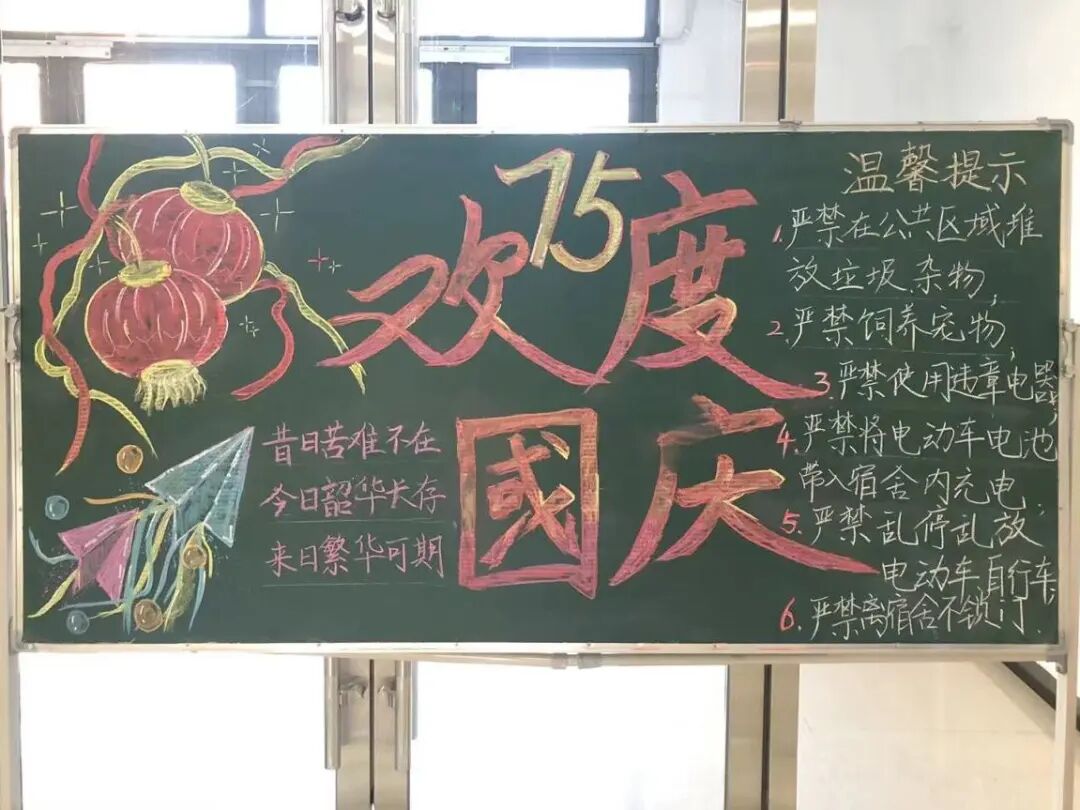 75
欢度
國庆
昔日苦难不在
今日韶华长存
来日繁华可期
温馨提示
1.严禁在公共区域堆
放垃圾杂物,
2.严禁饲养宠物,
3.严禁使用违章电器,
4.严禁将电动车电池
带入宿舍内充电,
5.严禁乱停乱放
电动车自行车,
6.严禁离宿舍不锁门.